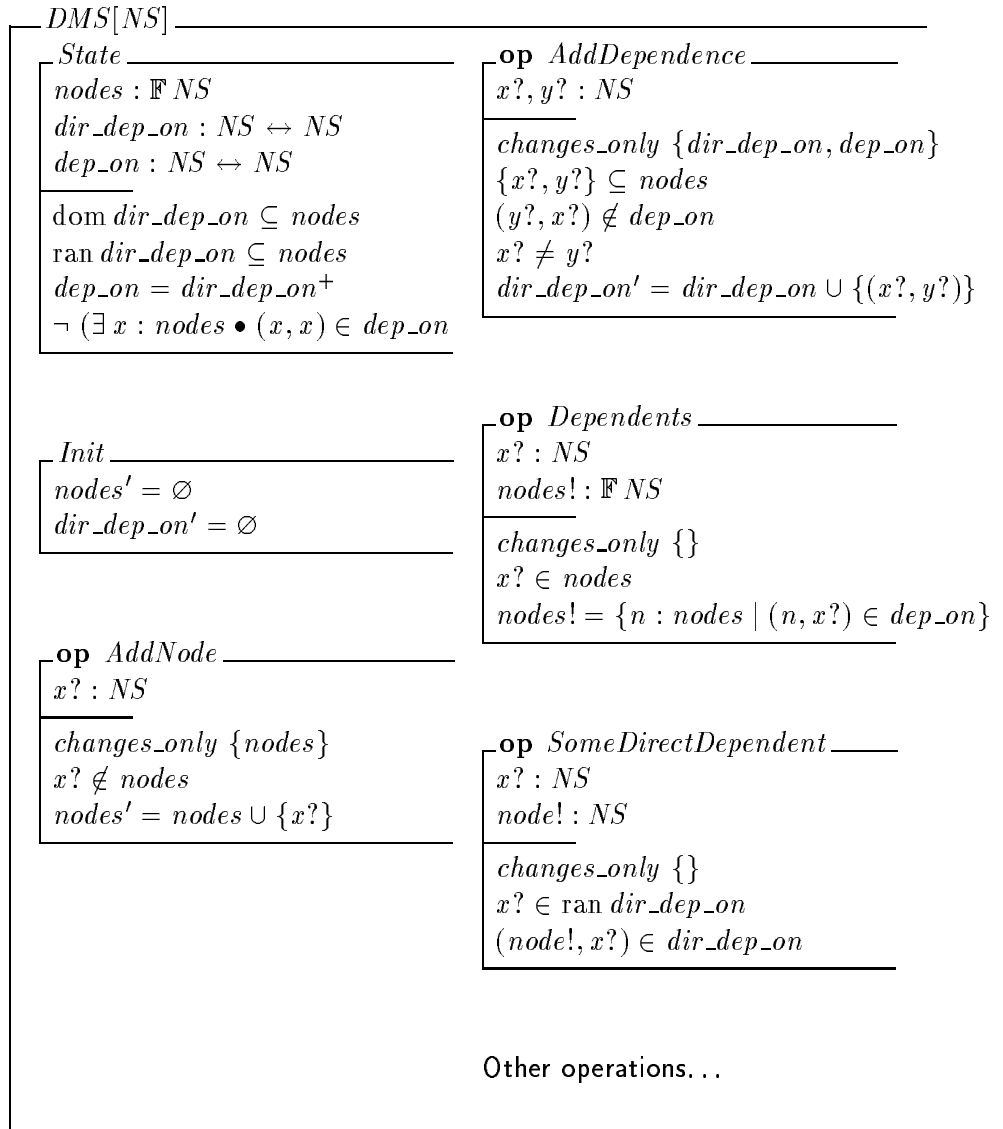 DMS[NS]
State
nodes : 𝔽 NS
dir_dep_on : NS ↔ NS
dep_on : NS ↔ NS
dom dir_dep_on ⊆ nodes
ran dir_dep_on ⊆ nodes
dep_on = dir_dep_on⁺
¬ (∃ x : nodes • (x, x) ∈ dep_on
Init
nodes′ = ∅
dir_dep_on′ = ∅
op AddNode
x? : NS
changes_only {nodes}
x? ∉ nodes
nodes′ = nodes ∪ {x?}
op AddDependence
x?, y? : NS
changes_only {dir_dep_on, dep_on}
{x?, y?} ⊆ nodes
(y?, x?) ∉ dep_on
x? ≠ y?
dir_dep_on′ = dir_dep_on ∪ {(x?, y?)}
op Dependents
x? : NS
nodes! : 𝔽 NS
changes_only {}
x? ∈ nodes
nodes! = {n : nodes | (n, x?) ∈ dep_on}
op SomeDirectDependent
x? : NS
node! : NS
changes_only {}
x? ∈ ran dir_dep_on
(node!, x?) ∈ dir_dep_on
Other operations...